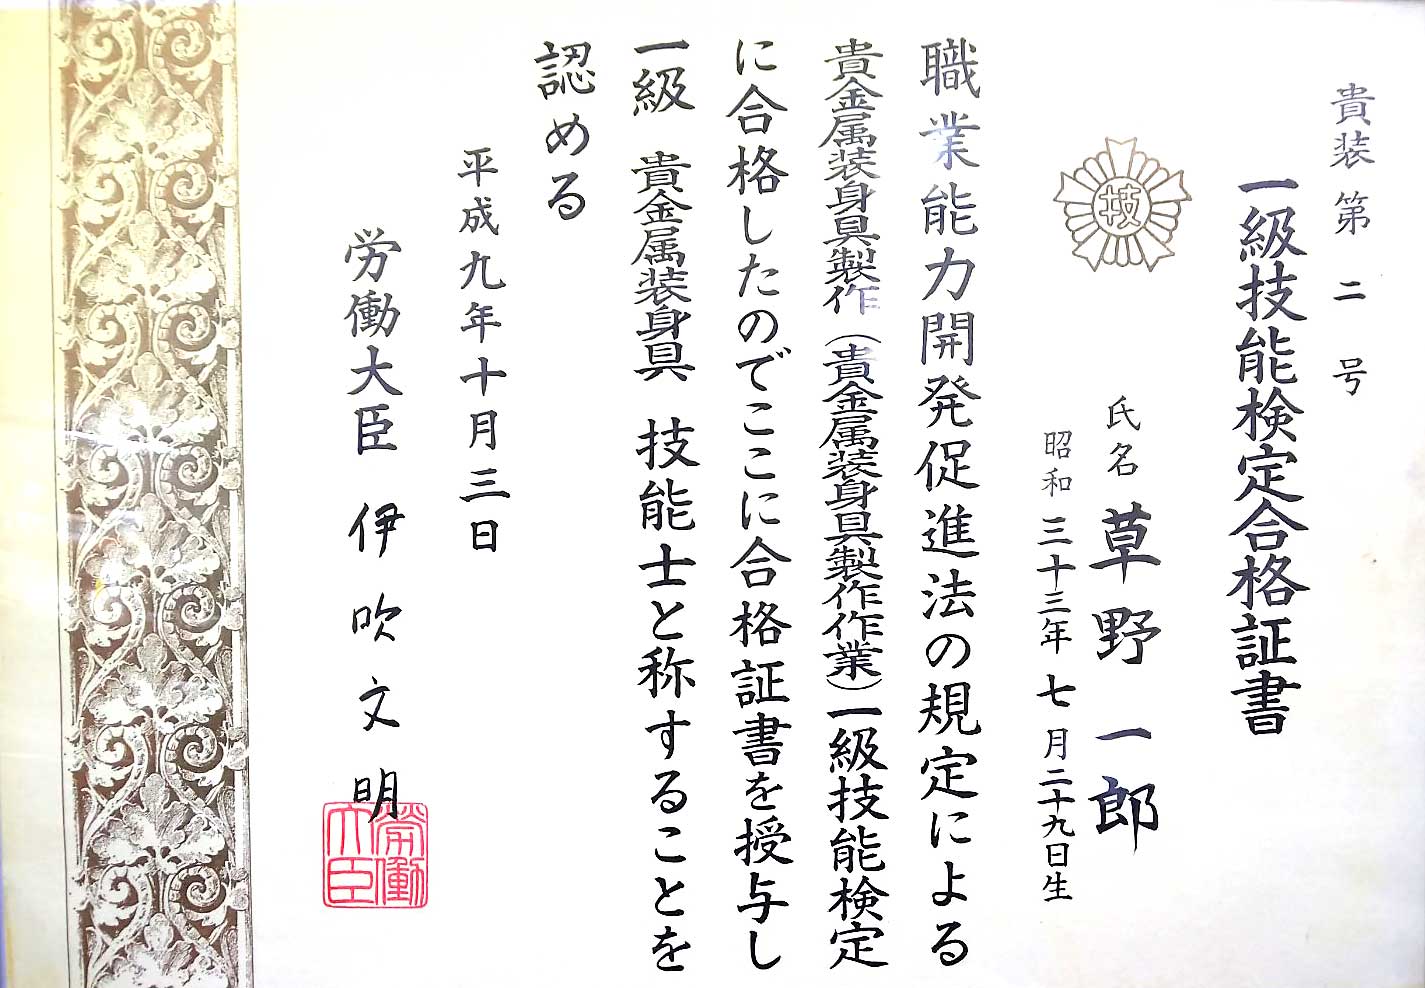 貴装 第 二 号
一級技能検定合格証書
技
氏名 草野 一郎
昭和 三十三年 七 月二十九日生
職業能力開発促進法の規定による
貴金属装身具製作（貴金属装身具製作作業）一級技能検定
に合格したのでここに合格証書を授与し
一級 貴金属装身具 技能士と称することを
認める
平成九年十月三日
労働大臣 伊吹文明
労働
大臣